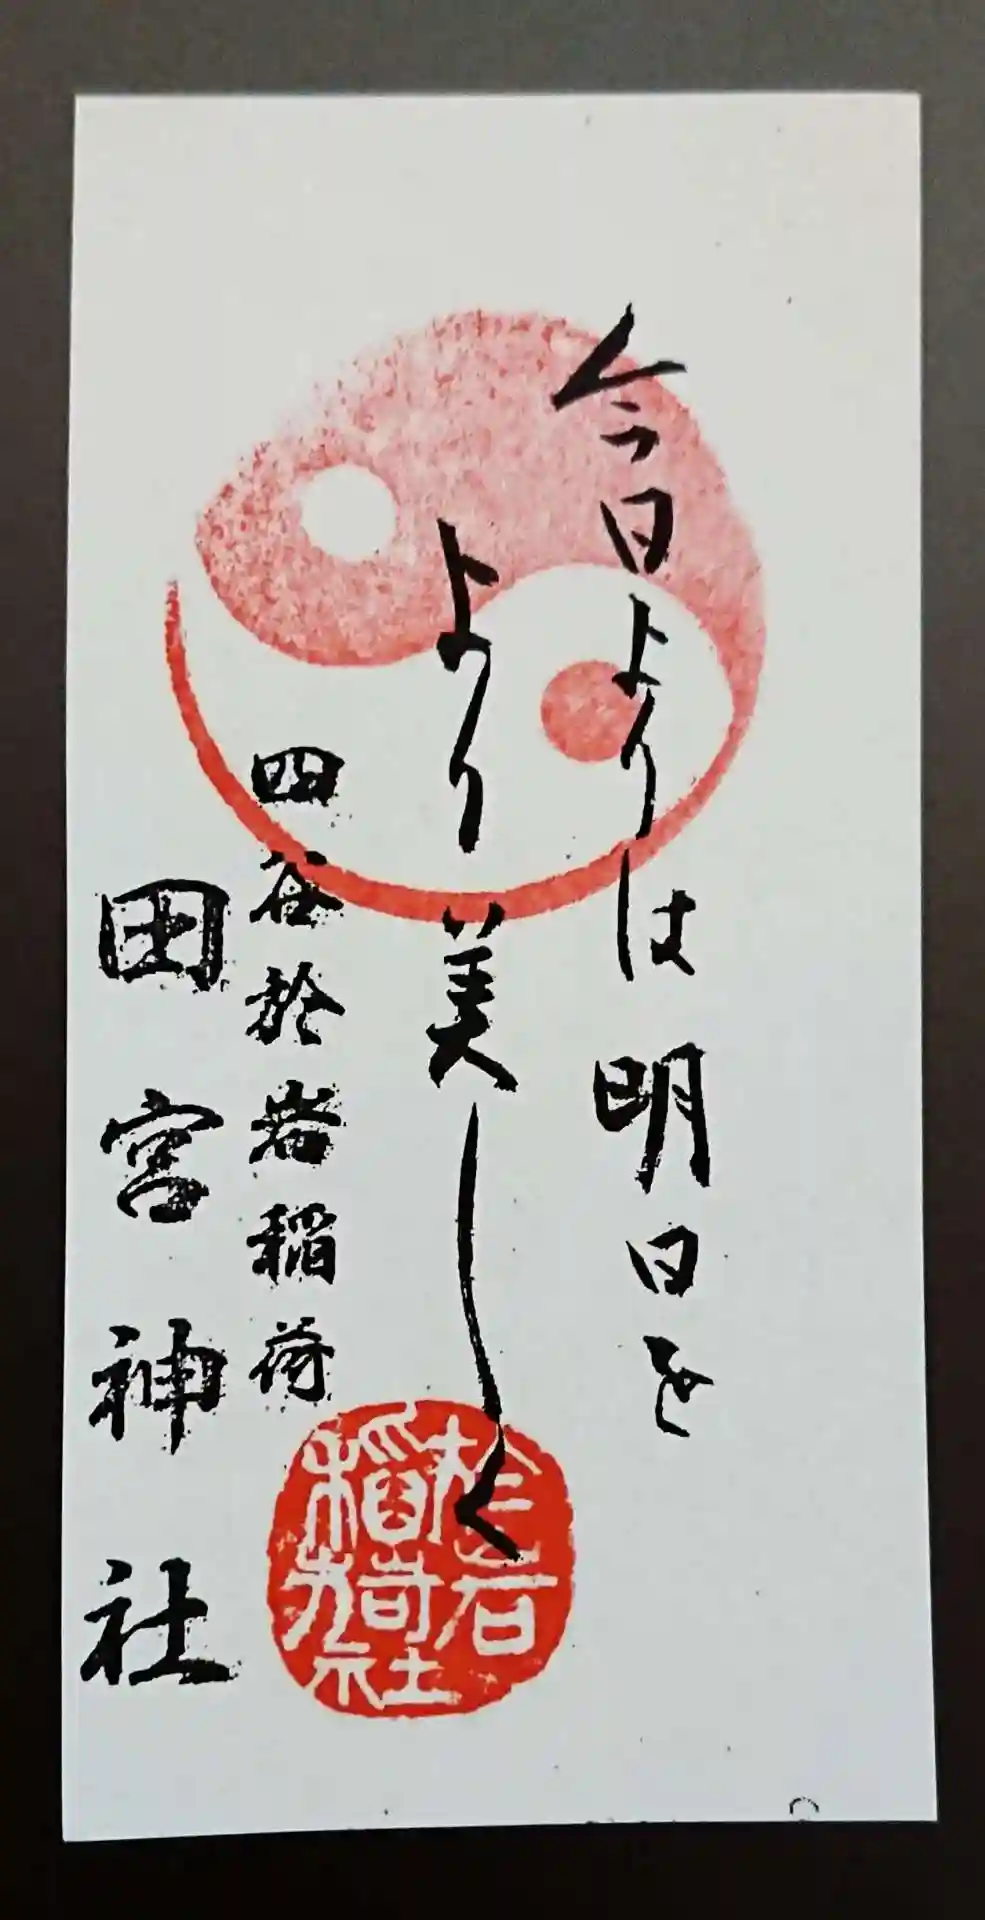 今日よりは明日を
より美しく
四谷於岩稲荷
田宮神社
於岩
稲荷
社